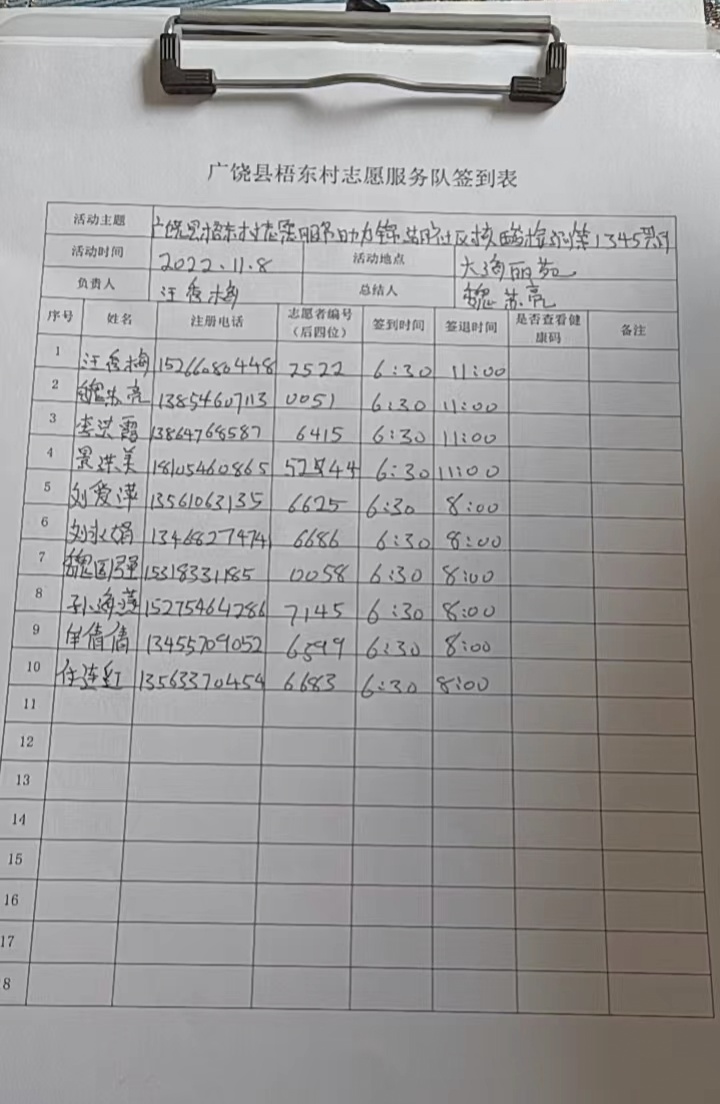 广饶县梧东村志愿服务队签到表
活动主题 广饶县梧东村志愿服务助力锦湖社区核酸检测第1345期
活动时间 2022.11.8 活动地点 大海丽苑
负责人 汪秀梅 总结人 魏苏亮
序号 姓名 注册电话 志愿者编号（后四位） 签到时间 签退时间 是否查看健康码 备注
1 汪秀梅 15266080448 2522 6:30 11:00
2 魏苏亮 13854607113 0051 6:30 11:00
3 李洪霞 13864768587 6415 6:30 11:00
4 景洪美 18105460865 6:30 11:00
5 刘爱萍 13561063135 6625 6:30 8:00
6 刘永娟 13468277474 6686 6:30 8:00
7 魏国强 15318331185 0058 6:30 8:00
8 孙海燕 15275464286 7145 6:30 8:00
9 倩倩 13455709052 6399 6:30 8:00
10 任连红 13563370454 6683 6:30 8:00
11
12
13
14
15
16
17
8